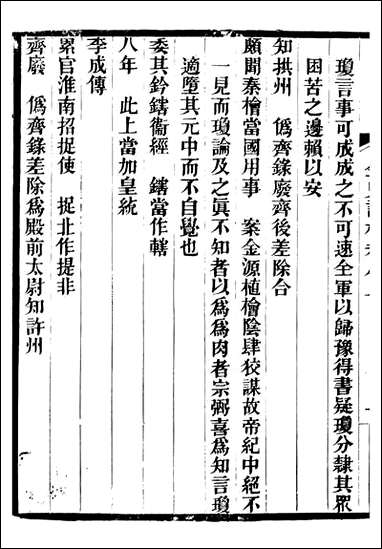 瓊言事可成成之不可速全軍以歸豫得書疑瓊分隸其眾
困苦之邊賴以安
知拱州　僞齊錄廢齊後差除合
頗聞秦檜當國用事　案金源植檜陰肆狡謀故帝紀中絕不
一見而瓊論及之眞不知者以爲爲肉者宗弼喜爲知言瓊
適墮其元中而不自覺也
委其鈐鎋衞經　鎋當作轄
八年　此上當加皇統
李成傳
累官淮南招捉使　捉北作提非
齊廢　僞齊錄差除爲殿前太尉知許州